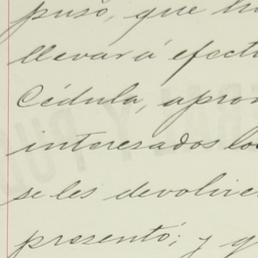 puso, que
llevar á efect
Cédula, apro
interesados lo
se les devolvie
presentó; y q